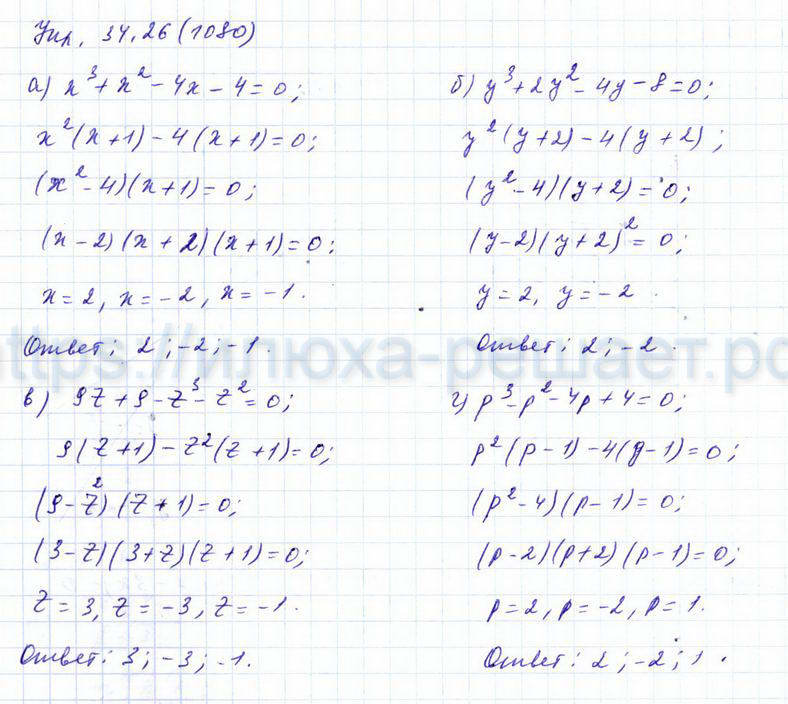 Упр. 34.26 (1080)
а) x³ + x² - 4x - 4 = 0;
x²(x+1) - 4(x+1) = 0;
(x² - 4)(x+1) = 0;
(x-2)(x+2)(x+1) = 0;
x = 2, x = -2, x = -1.
Ответ: 2; -2; -1.
б) y³ + 2y² - 4y - 8 = 0;
y²(y+2) - 4(y+2);
(y² - 4)(y+2) = 0;
(y-2)(y+2)² = 0;
y = 2, y = -2.
Ответ: 2; -2.
https://илюха-решает.рф
в) 9z + 9 - z³ - z² = 0;
9(z+1) - z²(z+1) = 0;
(9 - z²)(z+1) = 0;
(3-z)(3+z)(z+1) = 0;
z = 3, z = -3, z = -1.
Ответ: 3; -3; -1.
г) p³ - p² - 4p + 4 = 0;
p²(p-1) - 4(p-1) = 0;
(p² - 4)(p-1) = 0;
(p-2)(p+2)(p-1) = 0;
p = 2, p = -2, p = 1.
Ответ: 2; -2; 1.